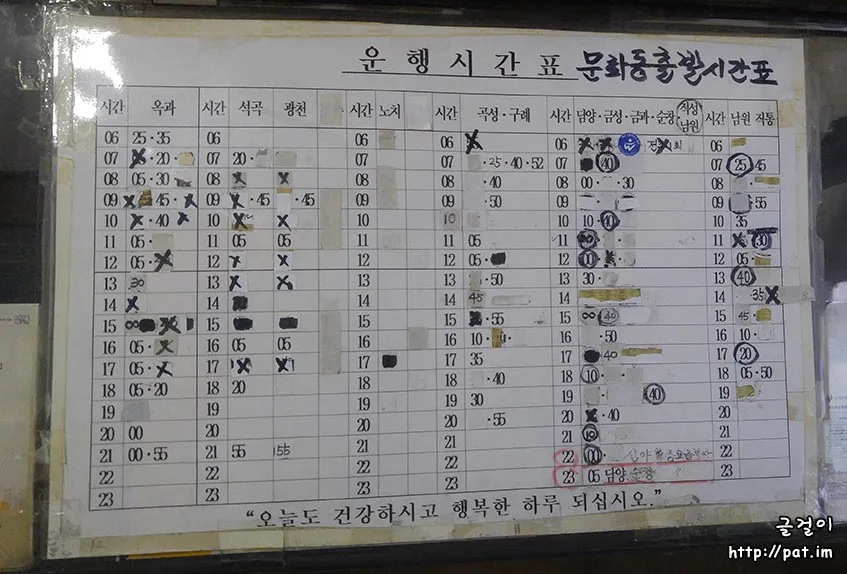 운 행 시 간 표 문화동출발시간표
시간 옥과 시간 석곡 광천 시간 노치 시간 곡성·구례 시간 담양·금성·금과·순창 적성 남원 시간 남원 직통
06 25·35 06 06 06 06 06
07 20 07 20 07 07 25·40·52 07 40 07 25 45
08 05·30 08 08 08 40 08 00 30 08
09 45 09 45 45 09 09 50 09 09 55
10 40 10 10 10 10 10·40 10 35
11 05 11 05 05 11 11 05 11 11 30
12 05 12 12 12 05 12 00 12 05
13 30 13 13 13 50 13 30 13 40
14 14 14 14 45 14 14 35
15 15 15 15 55 15 40 15 45
16 05 16 05 05 16 16 10 16 50 16 10
17 05 17 17 17 35 17 40 17 20
18 05·20 18 20 18 18 40 18 10 18 05·50
19 19 19 19 30 19 40 19
20 00 20 20 20 55 20 40 20
21 00·55 21 55 55 21 21 21 10 21
22 22 22 22 22 00 22
23 23 23 23 23 05 담양 순창 23
“오늘도 건강하시고 행복한 하루 되십시오.”
글걸이
http://pat.im